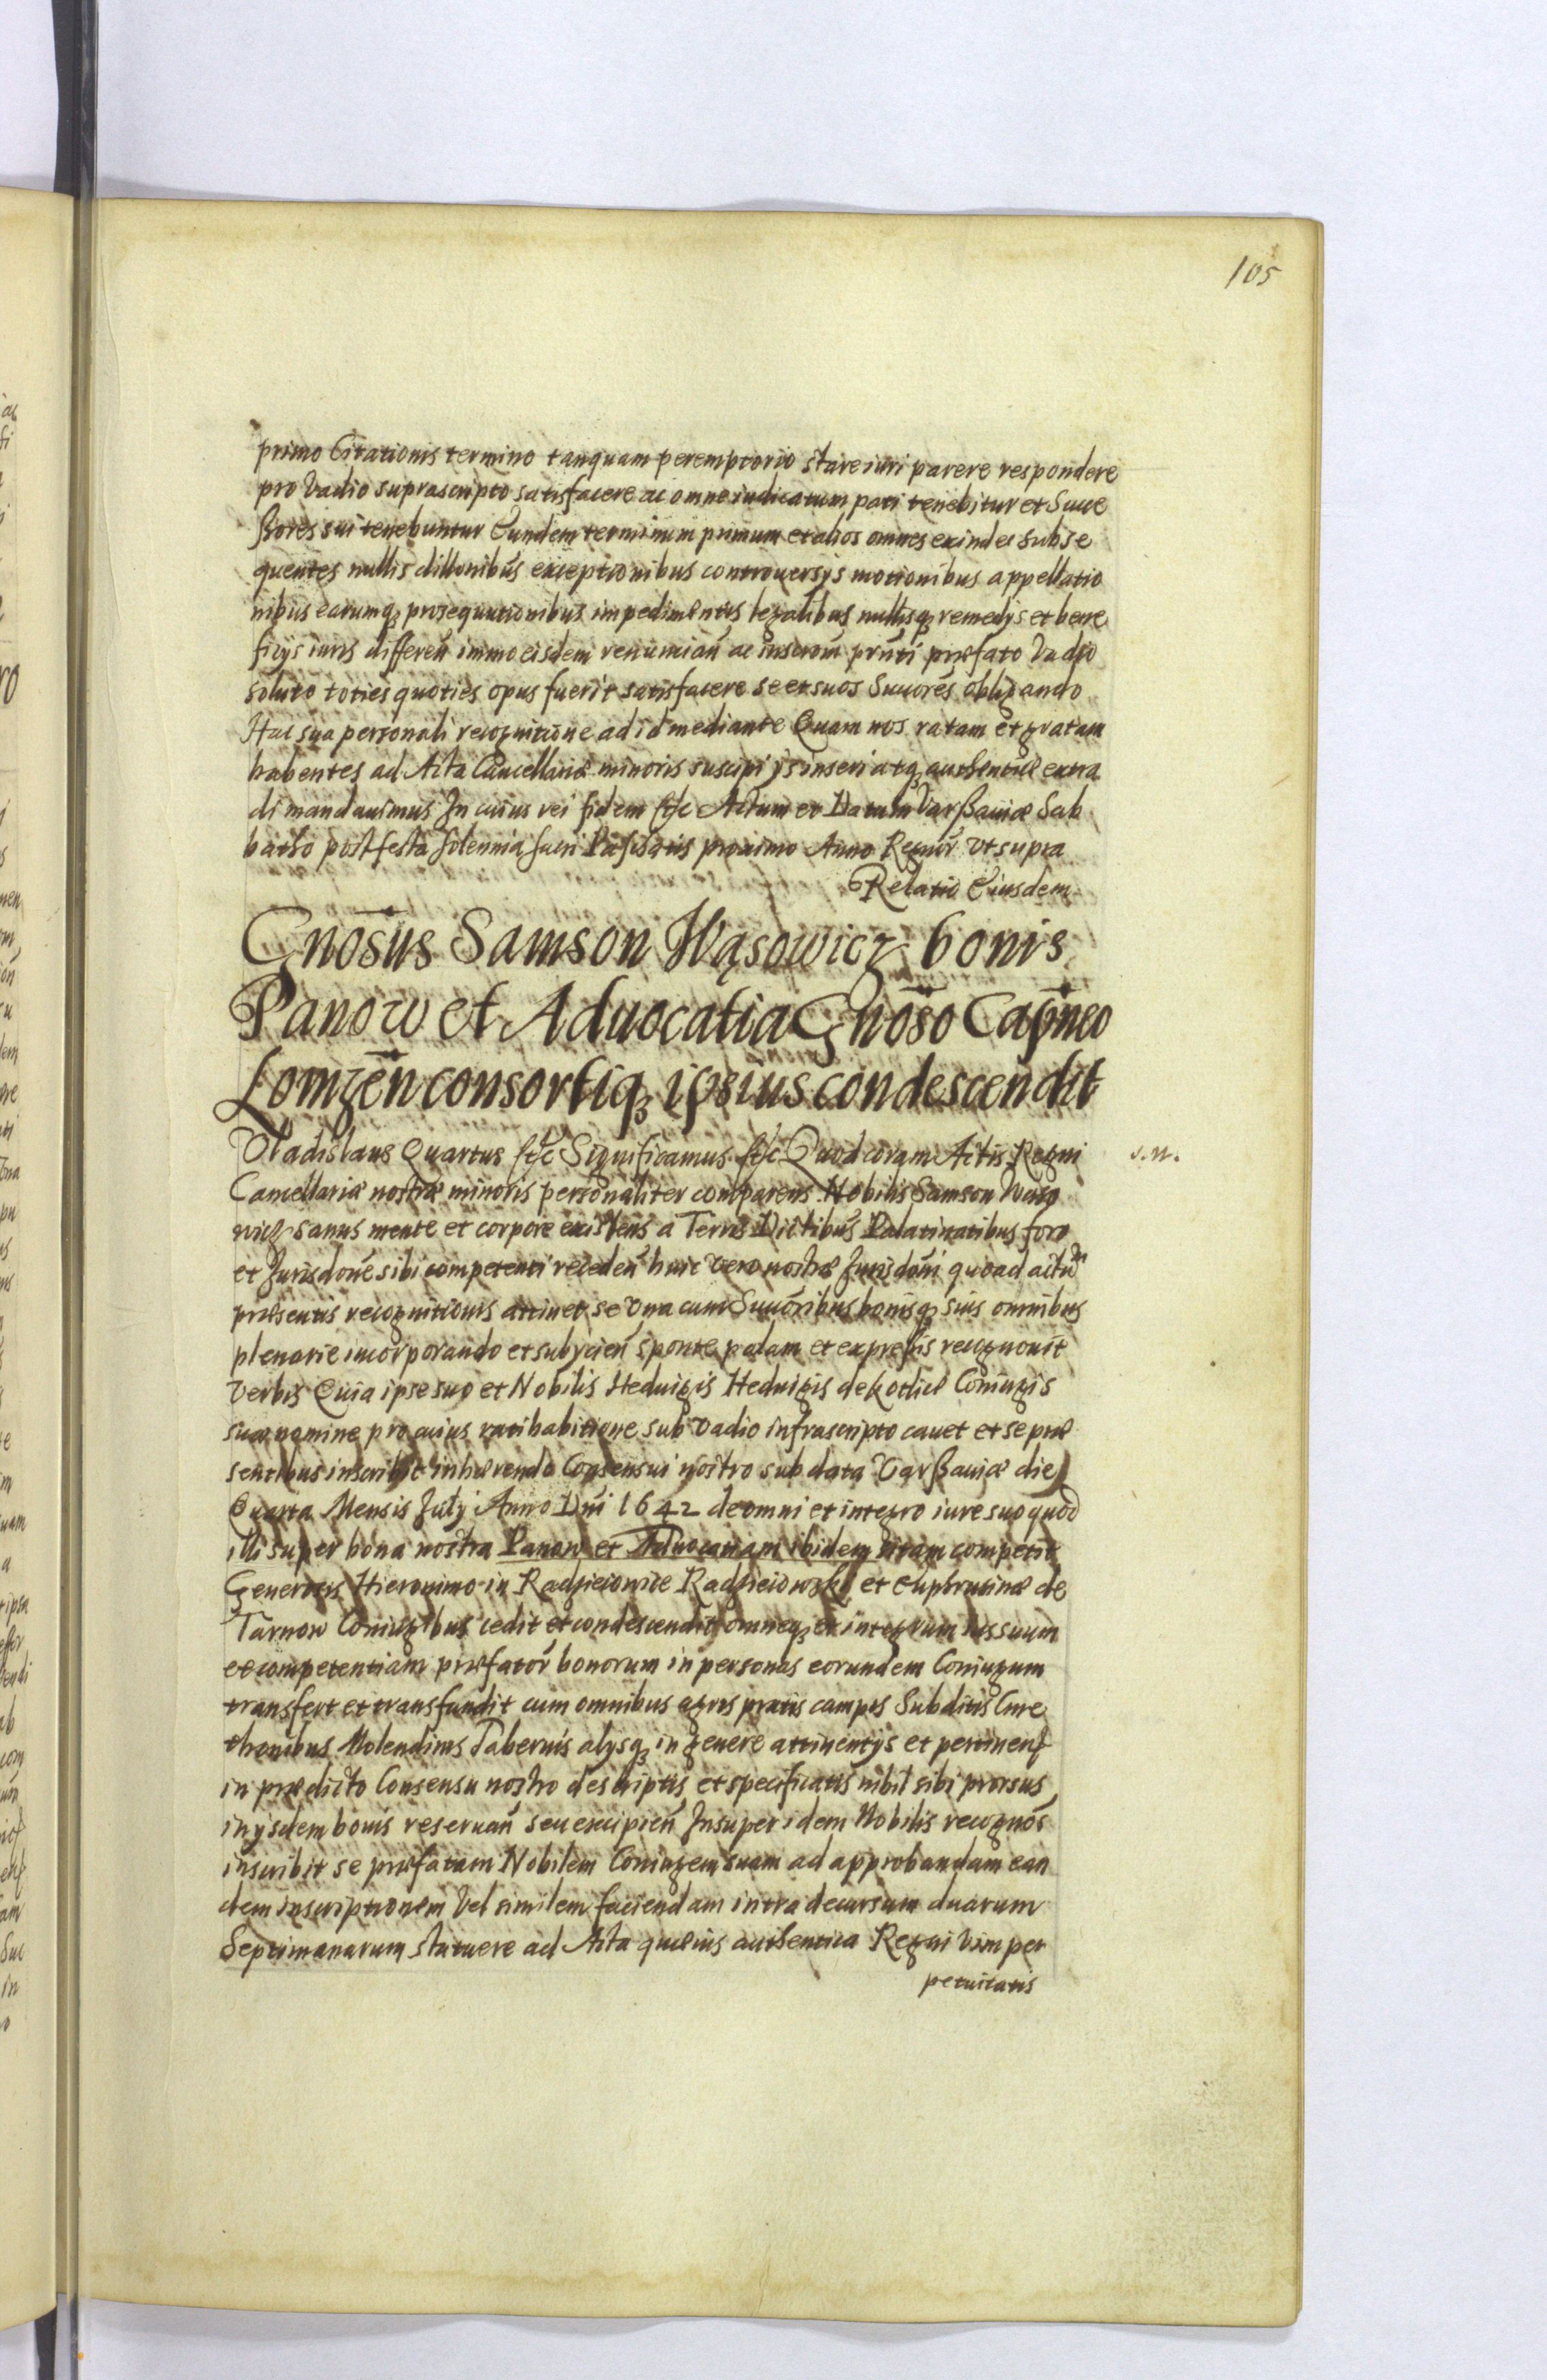 105
primo Citationis termino tanquam peremptorio stare iuri parere respondere
pro Vadio suprascripto satisfacere ac omne iudicatum pati tenebitur et Succe
ssores sui tenebuntur Eundem terminum primum et alios omnes exinde Subse
quentes nullis dillonibus exceptionibus controuersys motionibus appellatio
nibus earumq prosequutionibus impedimentis legalibus nullisq remedys et bene
ficys iuris differen̄ immo eisdem renuncian̄ ac inscrōni prn̄ti præfato Vadio
soluto toties quoties opus fuerit satisfacere se et suos Succōres obligando
Hac sua personali recognitione ad id mediante Quam nos ratam et gratam
habentes ad Acta Cancellariæ minoris suscipi ijs inseri atq authenticè extra
di mandauimus In cuius rei fidem etc Actum et Datum Varßauiæ Sab
batho post festa solennia sacri Paschatis proximo Anno Regnōr Vt supra
Relatio Eiusdem
Gnōsus Samson Wąsowicz bonis
Panow et Aduocatia Gnōso Capneo
Lomzen̄ consortiq ipsius condescendit
Vladislaus Quartus etc Significamus etc Quod coram Actis Regni
s.n.
Cancellariæ nostræ minoris personaliter comparens Nobilis Samson Wąso
wicz sanus mente et corpore existens a Terris Dictibus Palatinatibus foro
et Jurisdōne sibi competenti receden̄ huic vero nostræ Jurisdōni quoad actum
præsentis recognitionis attinet se Vna cum Succōribus bonisq suis omnibus
plenarie incorporando et subycien̄ sponte palam et expressis recognouit
Verbis Quia ipse suo et Nobilis Heduigis Heduigis de Kotlice Coniugis
suæ nomine pro cuius ratihabitione sub vadio infrascripto cauet et se præ
sentibus inscribit inhærendo Consensui nostro sub data Varßauiæ die
Quarta Mensis July Anno Dni 1642 de omni et integro iure suo quod
illi super bona nostra Panow et Aduocatiam ibidem sitam competit
Generosis Hieronimo in Radzieiowice Radzieiowski et Euphrusinæ de
Tarnow Coniugibus cedit et condescendit omneq et integrum ius suum
et competentiam præfatōr bonorum in personas eorundem Coniugum
transfert et transfundit cum omnibus agris pratis campis Subditis Cme
thonibus Molendinis Tabernis alysq in genere attinentys et pertinen̄
in prædicto Consensu nostro descriptis et specificatis nihil sibi prorsus
in ysdem bonis reseruan̄ seu excipien̄ Insuper idem Nobilis recognōs
inscribit se præfatam Nobilem Coniugem suam ad approbandam ean
dem inscriptionem Vel similem faciendam intra decursum duarum
Septimanarum statuere ad Acta quæuis authentica Regni Vim per
petuitatis